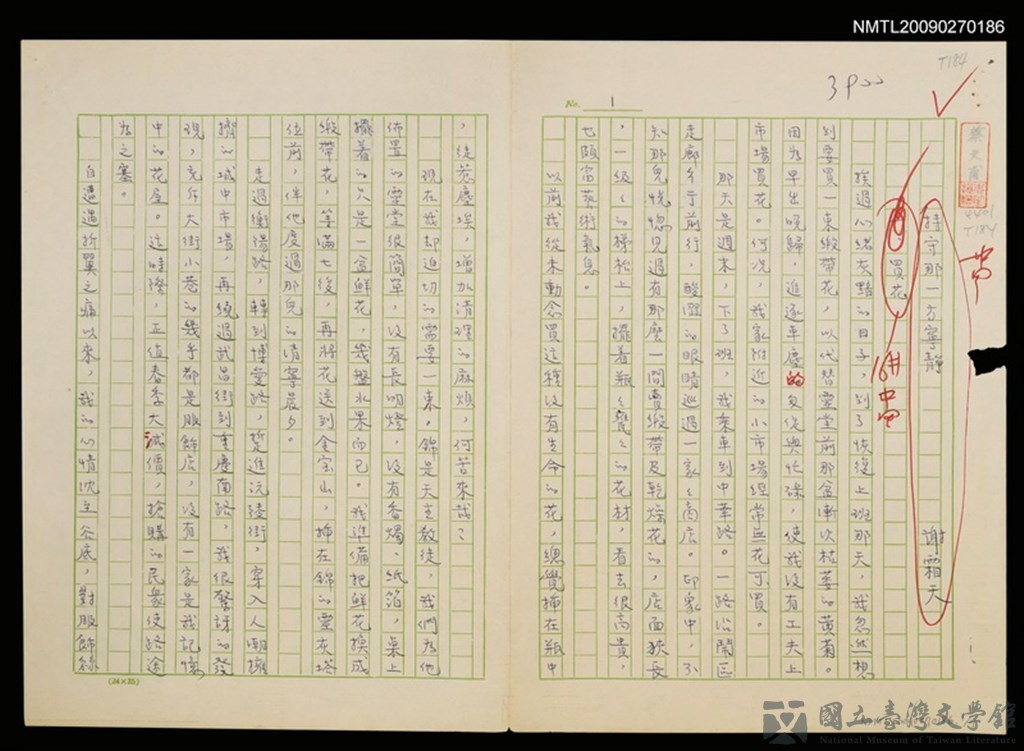 NMTL20090270186
T184
3P
No. 1
蔡文甫
4401
T184
持守那一方寧靜 謝霜天
買花
挨過心緒灰黯的日子,到了恢復上班那天,我忽然想
到要買一束緞帶花,以代替靈堂前那盆漸次枯萎的黃菊。
因為早出晚歸,追逐車塵的匆促與忙碌,使我沒有工夫上
市場買花。何況,我家附近的小市場經常無花可買。
那天是週末,下了班,我乘車到中華路。一路沿鬧區
走廊多亍前行,酸澀的眼睛巡過一家家商店。印象中,不
知那兒恍惚見過有那麼一間賣緞帶及乾燥花的,店面狹長
,一級級的梯松上,擺着瓶瓶甕甕的花材,看去很高貴,
也頗富藝術氣息。
以前我從未動念買這種沒有生命的花,總覺插在瓶中
,徒惹塵埃,增加清理的麻煩,何苦來哉?
現在我却迫切的需要一束。錦是天主教徒,我們為他
佈置的靈堂很簡單,沒有長明燈,沒有香燭、紙箔,桌上
擺着的只是一盆鮮花,幾盤水果而已。我準備把鮮花換成
緞帶花,等滿七後,再將花送到金宝山,插在錦的靈灰塔
位前,伴他度過那兒的清寧晨夕。
走過衡陽路,轉到博愛路,踅進沅陵街,穿入人潮擁
擠的城中市場,再繞過武昌街到重慶南路,我很驚訝的發
現,充斥大街小巷的幾乎都是服飾店,沒有一家是我記憶
中的花屋。這時際,正值春季大減價,搶購的民衆使路途
為之塞。
自遭遇折翼之痛以來,我的心情沈至谷底,對服飾絲
(24×25)
國立臺灣文學館
National Museum of Taiwan Literature